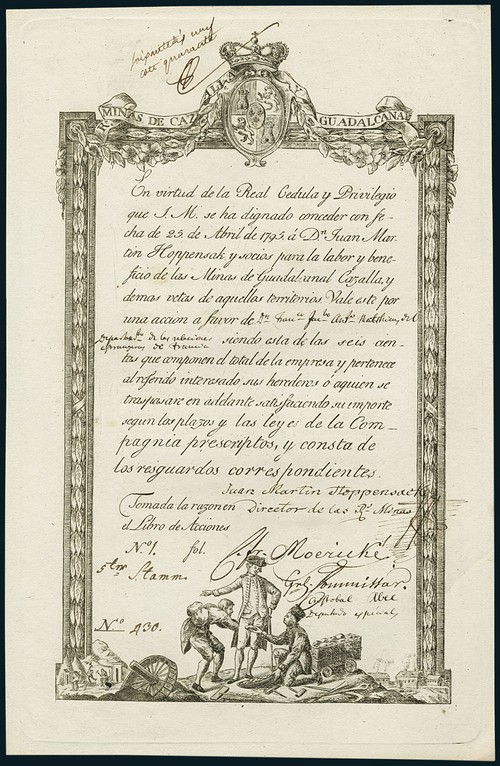 MINAS DE CAZALLA GUADALCANAL
En virtud de la Real Cedula y Privilegio
que S. M. se ha dignado conceder con fe-
cha de 25 de Abril de 1795. á Dn. Juan Mar-
tin Hoppensak y socios para la labor y bene-
ficio de las Minas de Guadalcanal Cazalla, y
demas vetas de aquellos territorios Vale este por
una acción a favor de Dn.
de las relaciones siendo esta de las seis cien-
estrangeros de francia
tas que componen el total de la empresa y pertenece
al referido interesado sus herederos ó aquien se
traspasare en adelante satisfaciendo su importe
segun los plazos y las leyes de la Com-
pagnia prescriptos, y consta de
los resguardos correspondientes.
Juan Martin Hoppensack
Tomada la razon en Director de las Rs. Minas
el Libro de Acciones
No. 1. fol.
Moericke
5ter Stamm.
Diputado
No. 430.